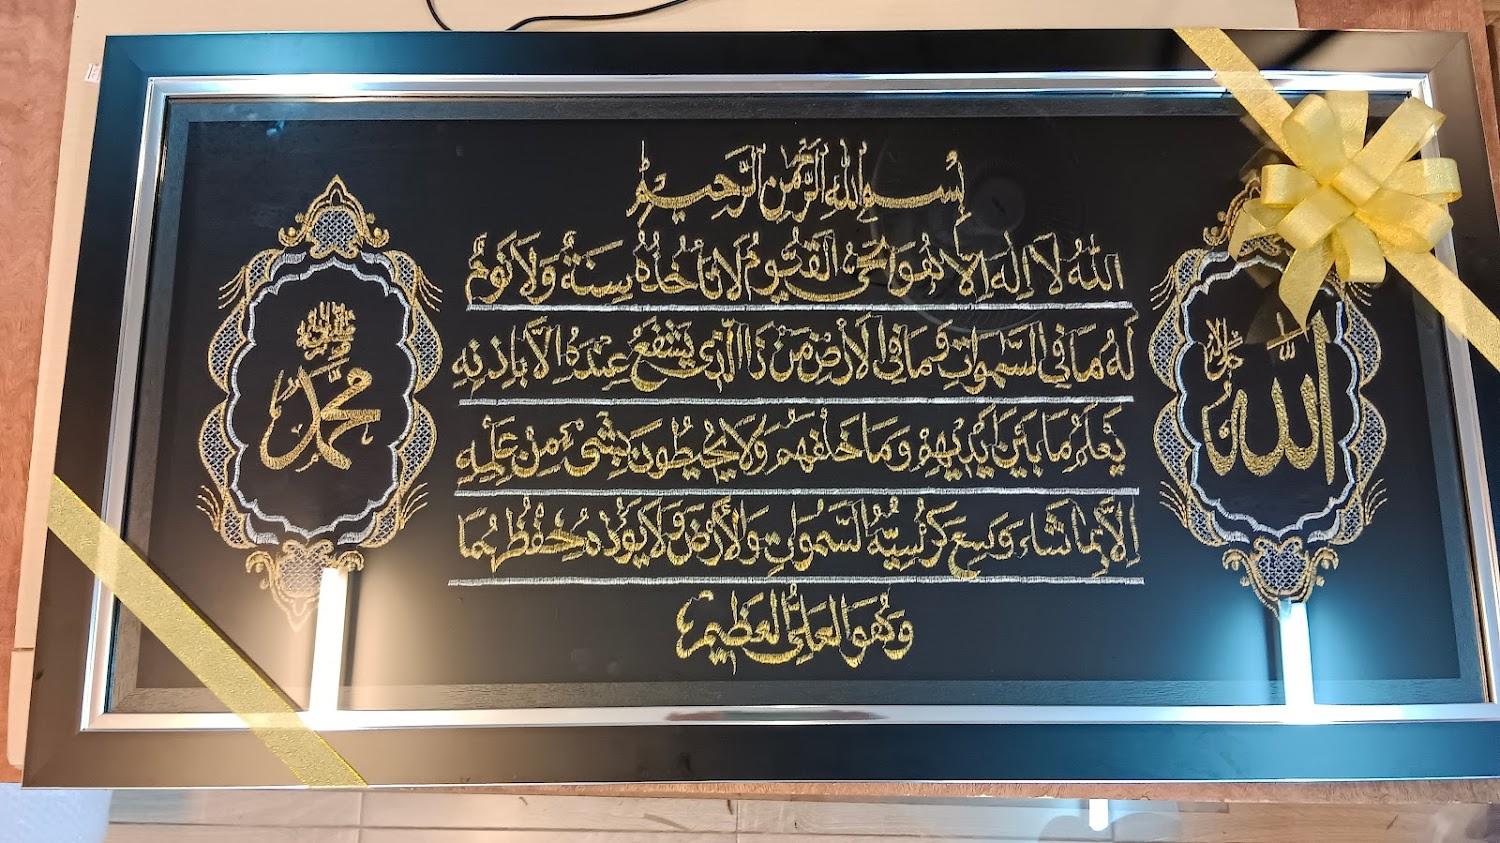 بسم الله الرحمن الرحيم
الله لا إله إلا هو الحي القيوم لا تأخذه سنة ولا نوم
له ما في السموات وما في الأرض من ذا الذي يشفع عنده إلا بإذنه
يعلم ما بين أيديهم وما خلفهم ولا يحيطون بشيء من علمه
إلا بما شاء وسع كرسيه السموات والأرض ولا يؤده حفظهما
وهو العلي العظيم
الله جل جلاله
محمد